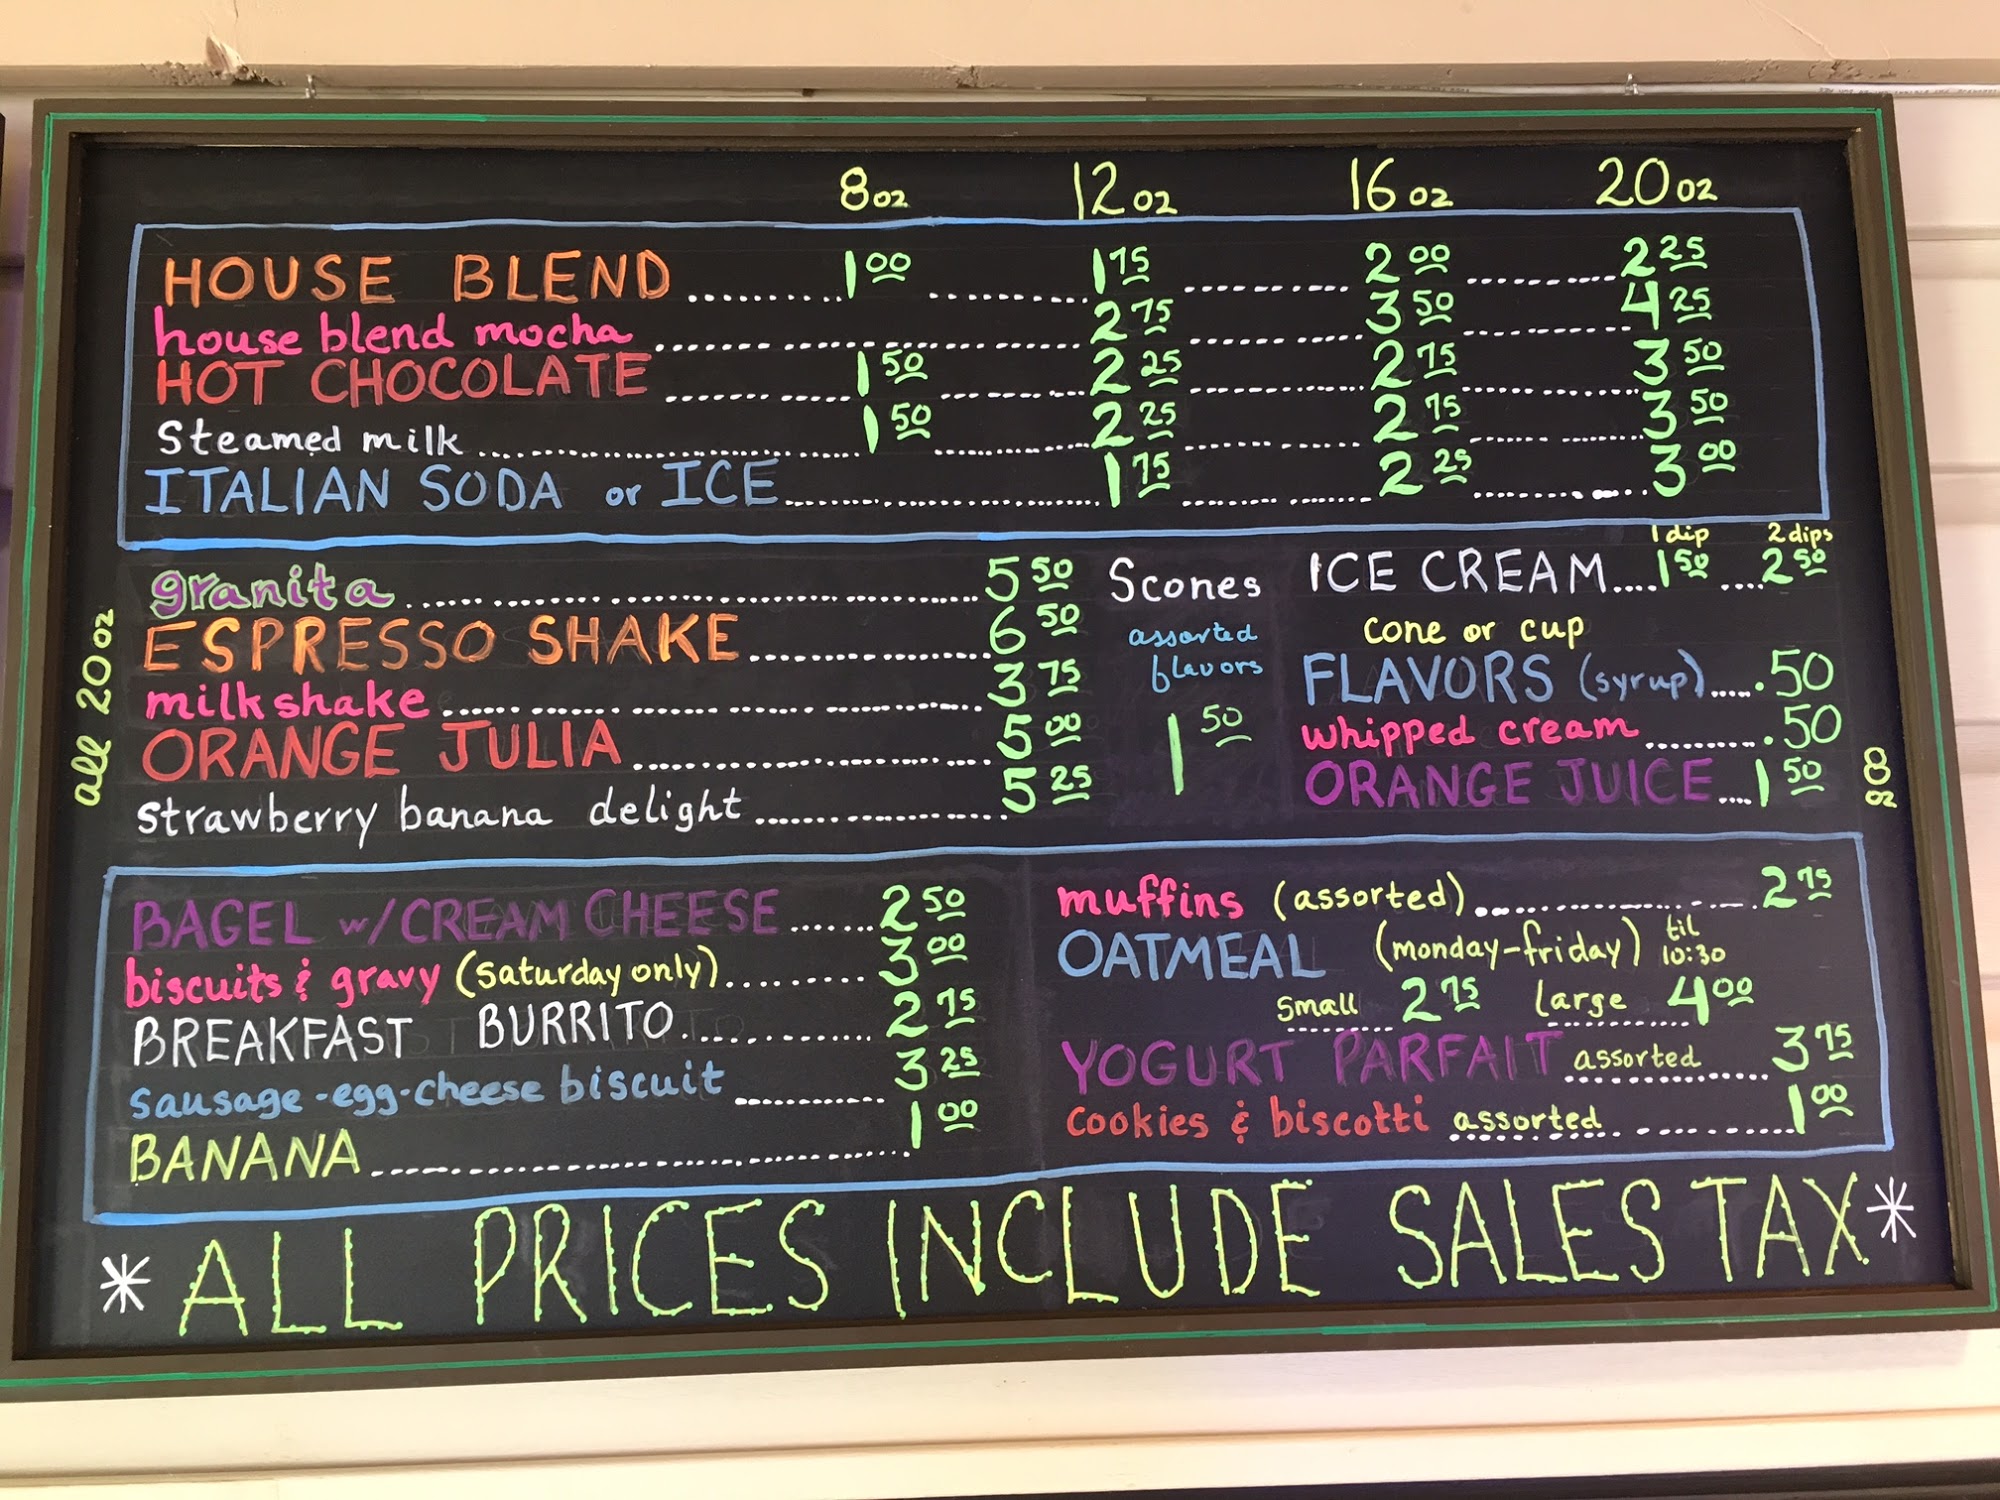 8 oz 12 oz 16 oz 20 oz
HOUSE BLEND 1 00 1 75 2 00 2 25
house blend mocha 2 75 3 50 4 25
HOT CHOCOLATE 1 50 2 25 2 75 3 50
Steamed milk 1 50 2 25 2 75 3 50
ITALIAN SODA or ICE 1 75 2 25 3 00
all 20 oz
granita 5 50
ESPRESSO SHAKE 6 50
milkshake 3 75
ORANGE JULIA 5 00
strawberry banana delight 5 25
Scones
assorted
flavors
1 50
1 dip 2 dips
ICE CREAM 1 50 2 50
cone or cup
FLAVORS (syrup) .50
whipped cream .50
ORANGE JUICE 1 50
8 oz
BAGEL w/CREAM CHEESE 2 50
biscuits & gravy (saturday only) 3 00
BREAKFAST BURRITO 2 75
sausage-egg-cheese biscuit 3 25
BANANA 1 00
muffins (assorted) 2 75
OATMEAL (monday-friday) til 10:30
small 2 75 large 4 00
YOGURT PARFAIT assorted 3 75
cookies & biscotti assorted 1 00
*ALL PRICES INCLUDE SALES TAX*